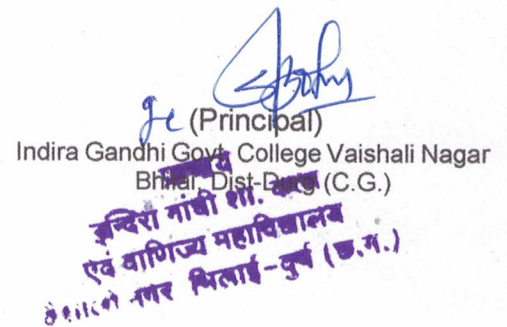 (Principal)
Indira Gandhi Govt. College Vaishali Nagar
Bhilai, Dist-Durg (C.G.)
इन्दिरा गांधी शा.
एवं वाणिज्य महाविद्यालय
नगर भिलाई-दुर्ग (छ.ग.)